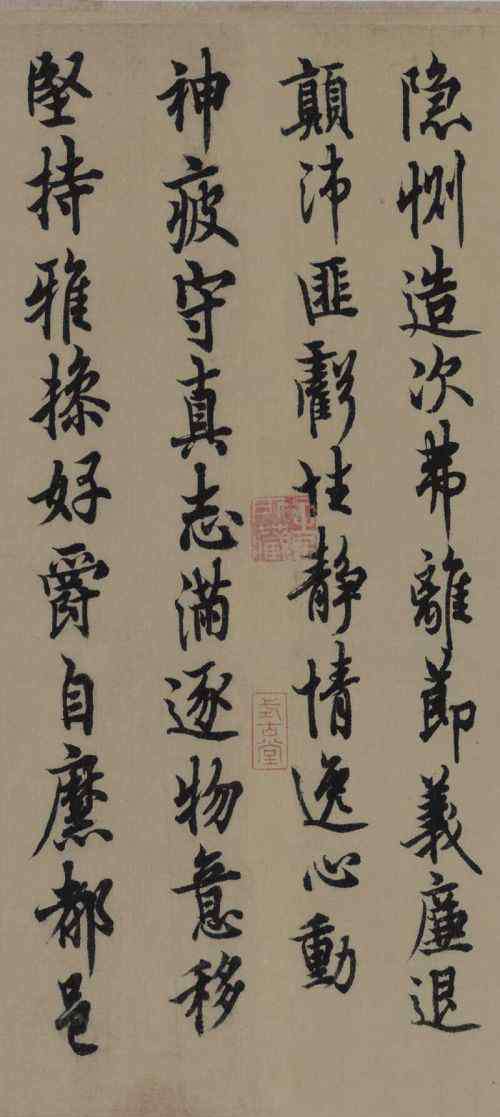 隐惻造次弗離節義廉退
顛沛匪虧性静情逸心動
神疲守真志滿逐物意移
堅持雅操好爵自縻都邑
式古堂